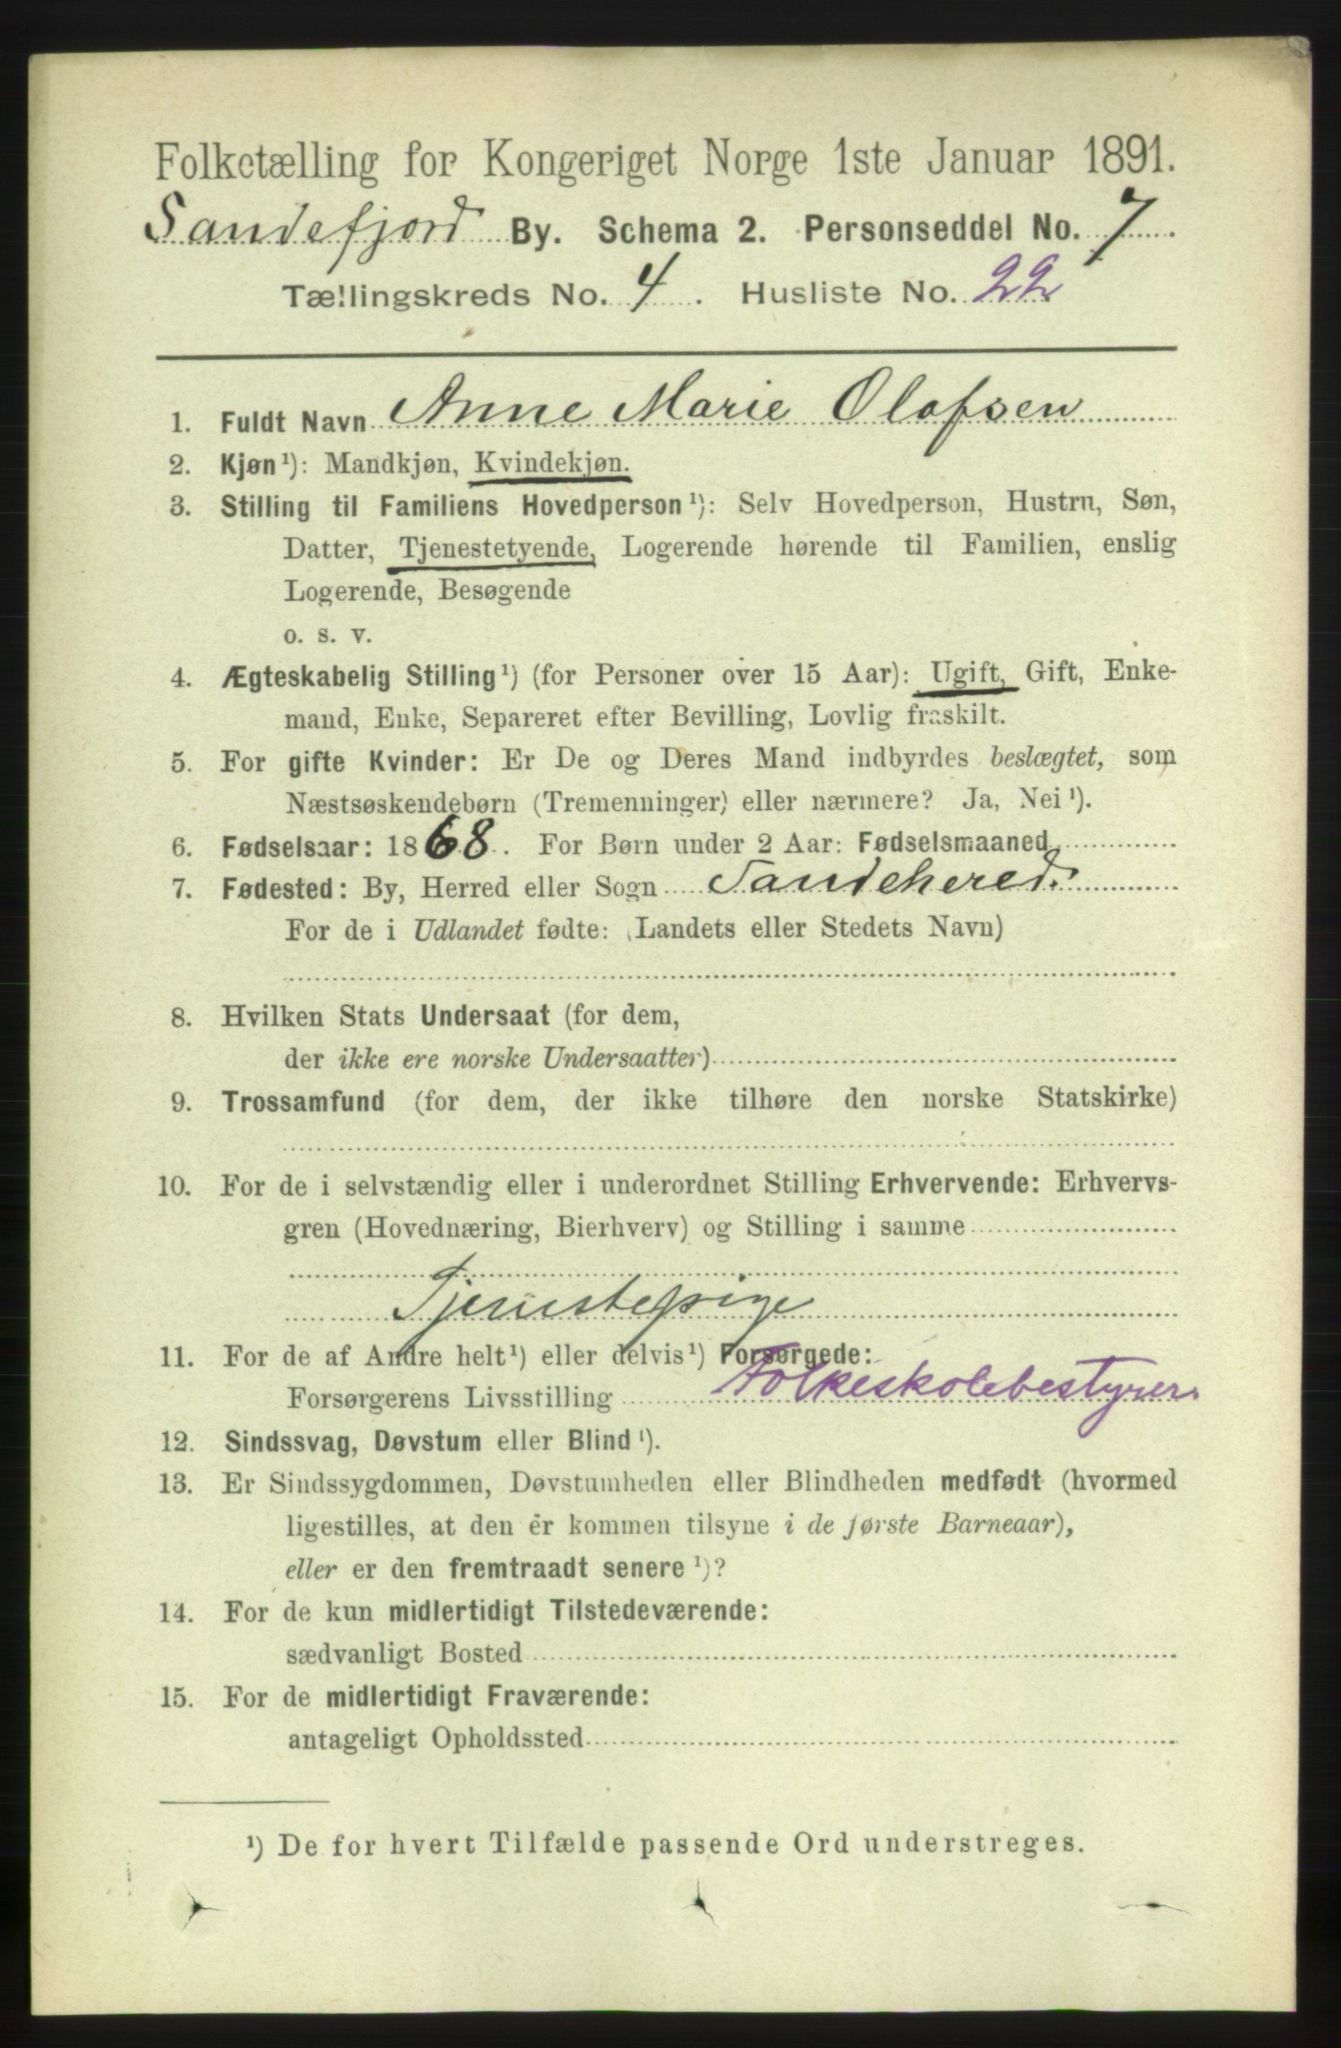 Folketælling for Kongeriget Norge 1ste Januar 1891.
Sandefjord By. Schema 2. Personseddel No. 7
Tællingskreds No. 4. Husliste No. 22
1. Fuldt Navn Anne Marie Olafsen
2. Kjøn ¹): Mandkjøn, Kvindekjøn.
3. Stilling til Familiens Hovedperson ¹): Selv Hovedperson, Hustru, Søn,
Datter, Tjenestetyende, Logerende hørende til Familien, enslig
Logerende, Besøgende
o. s. v.
4. Ægteskabelig Stilling ¹) (for Personer over 15 Aar): Ugift, Gift, Enke-
mand, Enke, Separeret efter Bevilling, Lovlig fraskilt.
5. For gifte Kvinder: Er De og Deres Mand indbyrdes beslægtet, som
Næstsøskendebørn (Tremenninger) eller nærmere? Ja, Nei ¹).
6. Fødselsaar: 1868. For Børn under 2 Aar: Fødselsmaaned
7. Fødested: By, Herred eller Sogn Sandehered.
For de i Udlandet fødte: (Landets eller Stedets Navn)
8. Hvilken Stats Undersaat (for dem,
der ikke ere norske Undersaatter)
9. Trossamfund (for dem, der ikke tilhøre den norske Statskirke)
10. For de i selvstændig eller i underordnet Stilling Erhvervende: Erhvervs-
gren (Hovednæring, Bierhverv) og Stilling i samme
Tjenestepige
11. For de af Andre helt ¹) eller delvis ¹) Forsørgede:
Forsørgerens Livsstilling Folkeskolebestyrer.
12. Sindssvag, Døvstum eller Blind ¹).
13. Er Sindssygdommen, Døvstumheden eller Blindheden medfødt (hvormed
ligestilles, at den er kommen tilsyne i de første Barneaar),
eller er den fremtraadt senere ¹)?
14. For de kun midlertidigt Tilstedeværende:
sædvanligt Bosted
15. For de midlertidigt Fraværende:
antageligt Opholdssted
¹) De for hvert Tilfælde passende Ord understreges.